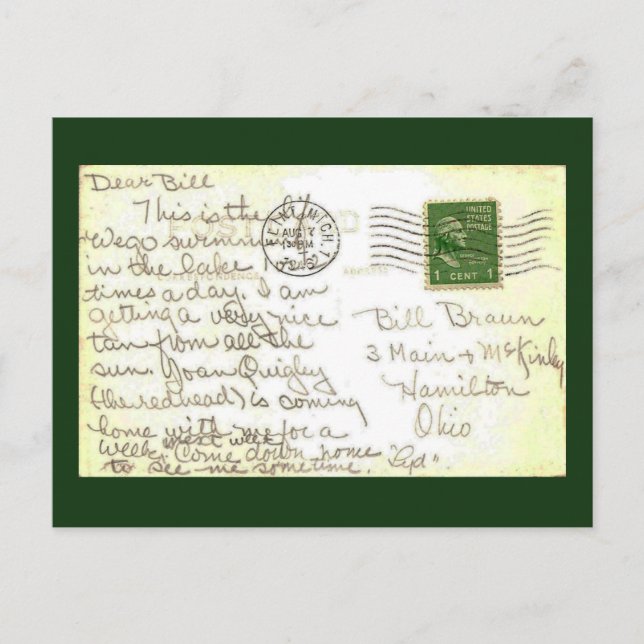 Dear Bill
This is the life
We go swimming
in the lake
times a day. I am
getting a very nice
tan from all the
sun. Joan Quigley
(the redhead) is coming
home with me for a
week next week
Come down home
to see me sometime. "Syd".
POST CARD
CORRESPONDENCE
ADDRESS
FLINT, MICH.
AUG 7
130 PM
UNITED
STATES
POSTAGE
1 CENT 1
Bill Braun
3 Main & McKinley
Hamilton
Ohio